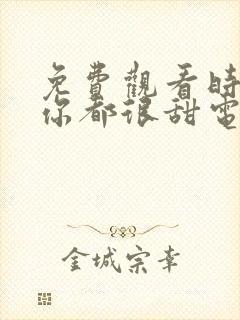 免費觀看時
你都很甜電
金城宗幸